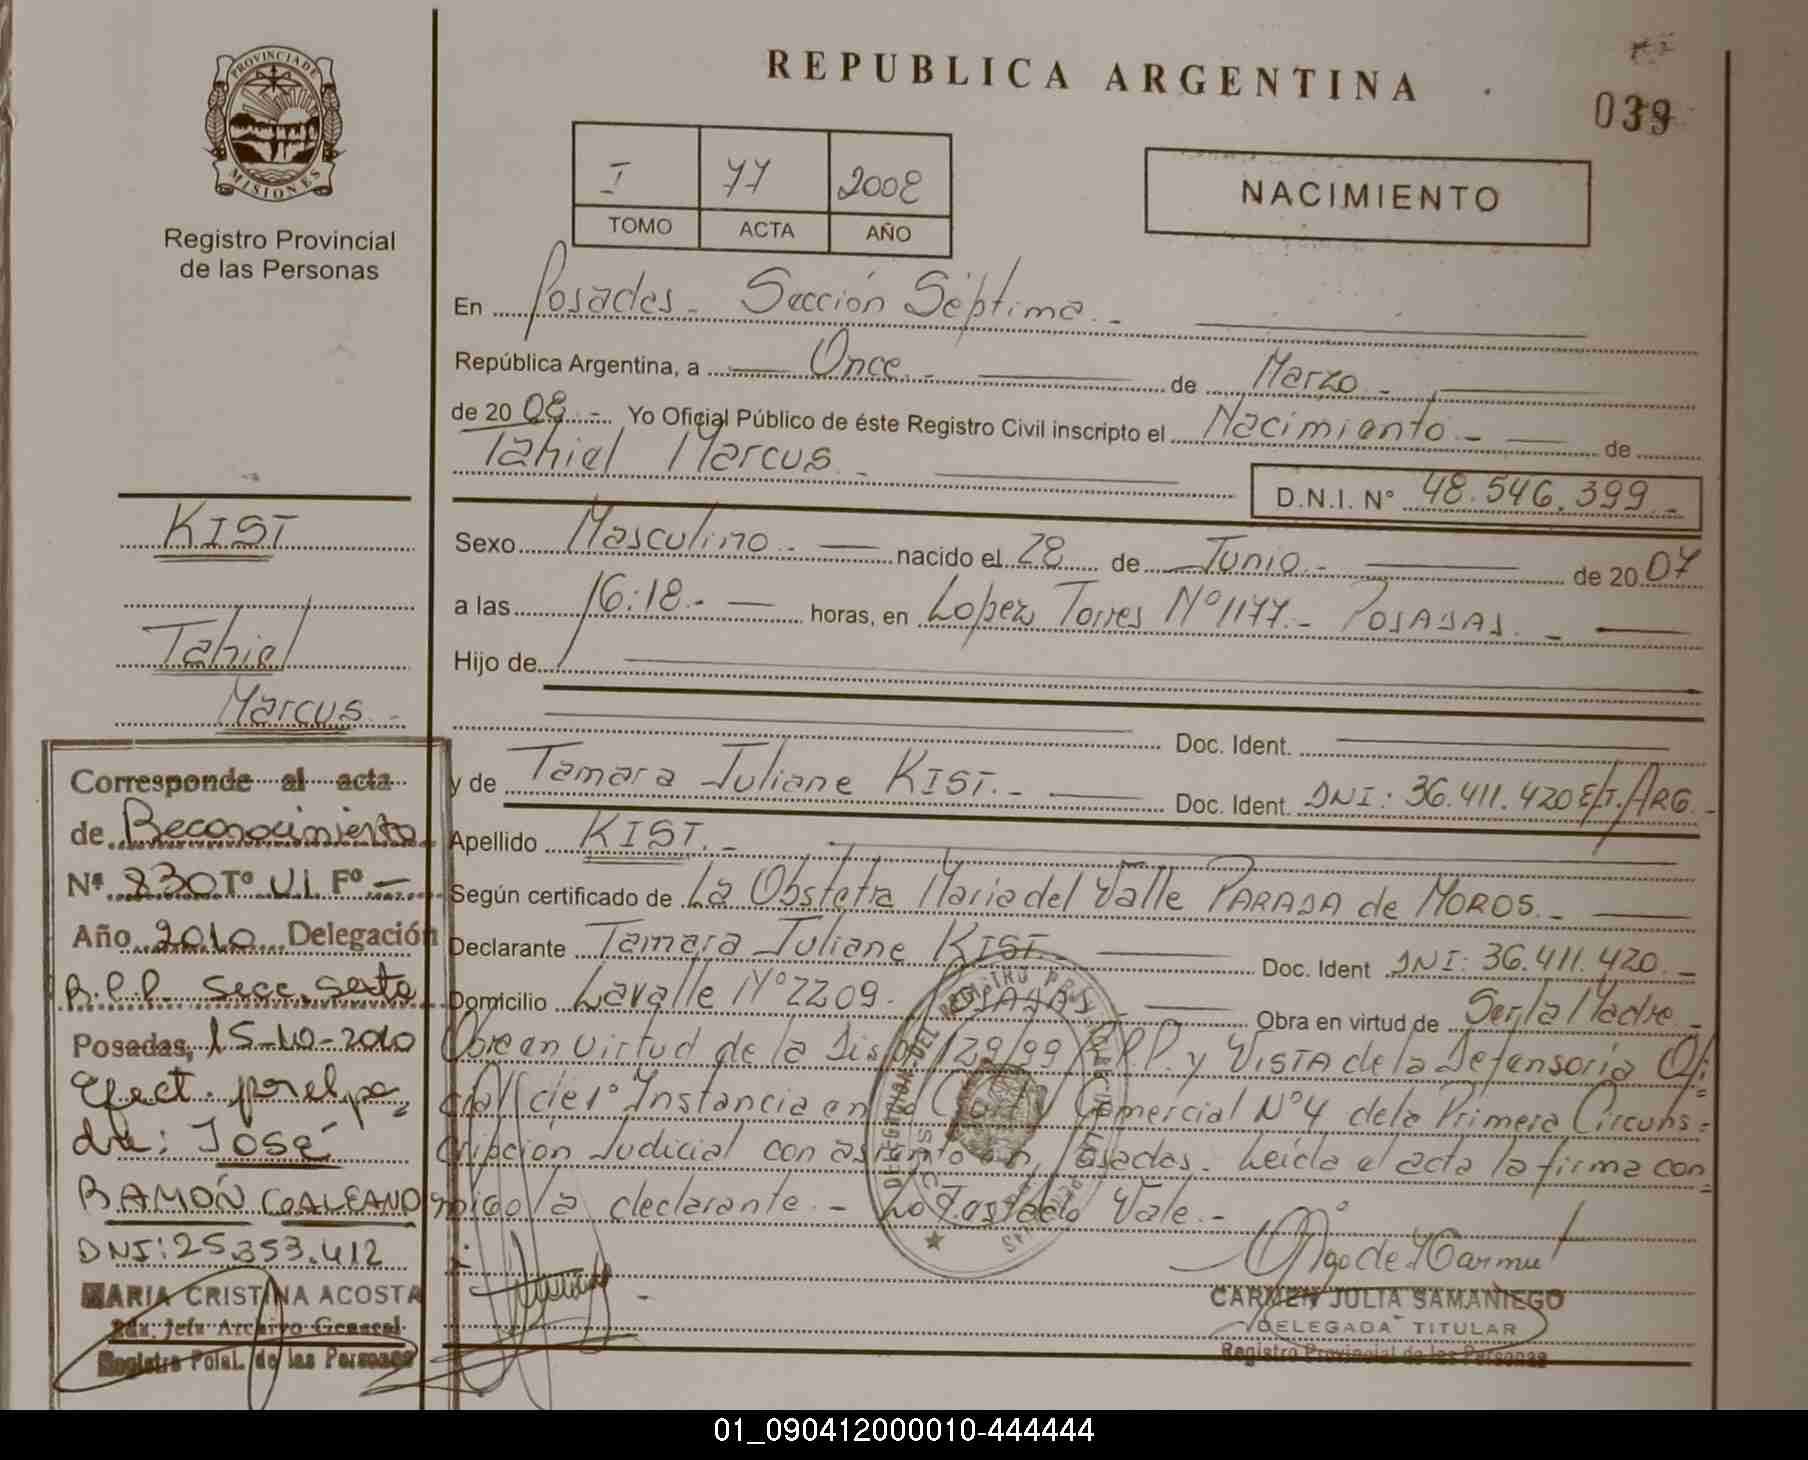 PROVINCIA DE
MISIONES
Registro Provincial
de las Personas
REPUBLICA ARGENTINA
039
I 77 2008
TOMO ACTA AÑO
NACIMIENTO
En Posadas - Sección Séptima.-
República Argentina, a Once.- de Marzo.-
de 2008.- Yo Oficial Público de éste Registro Civil inscripto el Nacimiento.- de
Tahiel Marcus.-
D.N.I. N° 48.546.399.-
KIST
Tahiel
Marcus.-
Sexo Masculino.- nacido el 28 de Junio.- de 2007
a las 16:18.- horas, en Lopez Torres N°1177.- POSADAS.-
Hijo de
Doc. Ident.
y de Tamara Juliane KIST.- Doc. Ident. DNI: 36.411.420 E/T. ARG.-
Apellido KIST.-
Según certificado de La Obstetra Maria del Valle PARADA de MOROS.-
Declarante Tamara Juliane KIST.- Doc. Ident DNI: 36.411.420.-
Domicilio Lavalle N°2209. POSADAS Obra en virtud de Ser la Madre.-
Obre en virtud de la Disp. 129/99 R.P.P. y VISTA de la Defensoria Ofi
cial de 1° Instancia en lo Civil y Comercial N°4 de la Primera Circuns=
cripción Judicial con asiento en Posadas. Leída el acta la firma con=
migo la declarante.- Lo Testado Vale.-
CARMEN JULIA SAMANIEGO
DELEGADA TITULAR
Registro Provincial de las Personas
Corresponde al acta
de Reconocimiento
N° 830 T° VI F° -
Año 2010 Delegación
R.P.P. Secc. Sexta
Posadas, 15-10-2010
Efect. por el pa=
dre: José
RAMÓN GALEANO
DNI: 25.353.412
MARIA CRISTINA ACOSTA
Jefa Archivo General
Registro Pcial. de las Personas
01_090412000010-444444